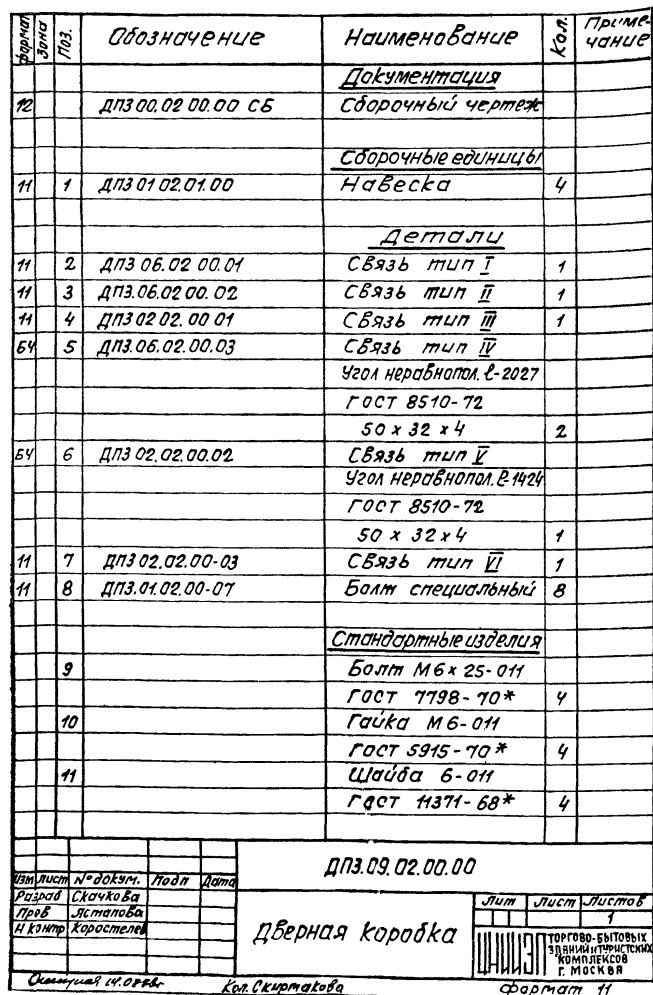 формат Зона Поз. Обозначение Наименование Кол. Приме-чание
Документация
12 ДПЗ 00.02 00.00 СБ Сборочный чертеж
Сборочные единицы
11 1 ДПЗ 01 02.01.00 Навеска 4
Детали
11 2 ДПЗ 06.02 00.01 Связь тип I 1
11 3 ДПЗ.06.02 00.02 Связь тип II 1
11 4 ДПЗ 02 02.00 01 Связь тип III 1
БЧ 5 ДПЗ.06.02.00.03 Связь тип IV
Угол неравнопол. ℓ-2027
ГОСТ 8510-72
50 х 32 х 4 2
БЧ 6 ДПЗ 02.02.00.02 Связь тип V
Угол неравнопол. ℓ-1424
ГОСТ 8510-72
50 х 32 х 4 1
11 7 ДПЗ 02.02.00-03 Связь тип VI 1
11 8 ДПЗ.01.02.00-07 Болт специальный 8
Стандартные изделия
9 Болт М6х25-011
ГОСТ 7798-70* 4
10 Гайка М6-011
ГОСТ 5915-70* 4
11 Шайба 6-011
ГОСТ 11371-68* 4
ДПЗ.09.02.00.00
Изм Лист № докум. Подп Дата
Разраб Скачкова
Пров Астапова
Н контр Коростелев
Дверная коробка
Лит Лист Листов
1
ЦНИИЭП ТОРГОВО-БЫТОВЫХ
ЗДАНИЙ И ТУРИСТСКИХ
КОМПЛЕКСОВ
Г. МОСКВА
Кол. Скиртакова Формат 11